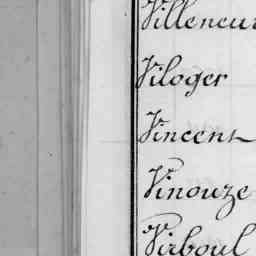 Villeneu
Viloger
Vincent
Vinouze
Virboul